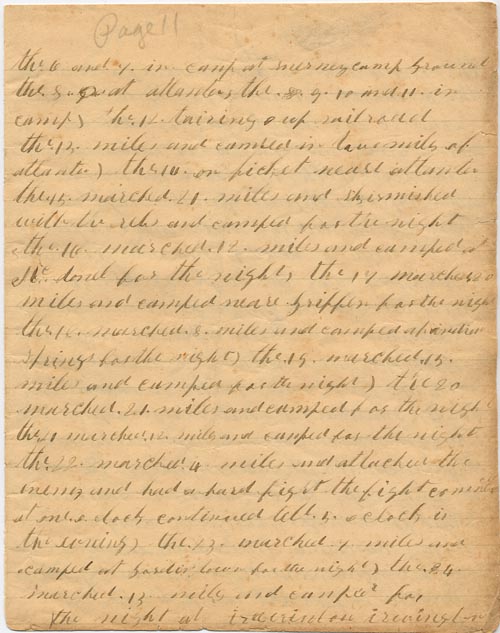 Page 11
the 6 and 7. in camp at murneycamp Ground
the 8. at atlanta, the 9. 10 and 11. in
camp) the 12. tairing up railroad
the 13. miles and camped in two mile of
atlanta) the 14. on picket neare atlanta
the 15. marched. 21. miles and skirmished
with the rebs and camped for the night
the 16. marched. 12. miles and camped at
Mc. donel for the night, the 17 marched. 20
miles and camped neare Griffen for the nigh
the 18. marched. 8. miles and camped at indian
springs for the night) the 19. marched. 15.
miles and camped for the night) the 20
marched. 21. miles and camped for the nigh
the 21 marched. 12. miles and camped for the night
the. 22. marched. 4. miles and attacked the
enemy and had a hard fight the fight comin
at one. o clock continued till 5. o clock in
the evning) the. 23. marched. 7. miles and
camped at Gordin town for the night) the. 24
marched. 13. miles and camped for
the night at irvington